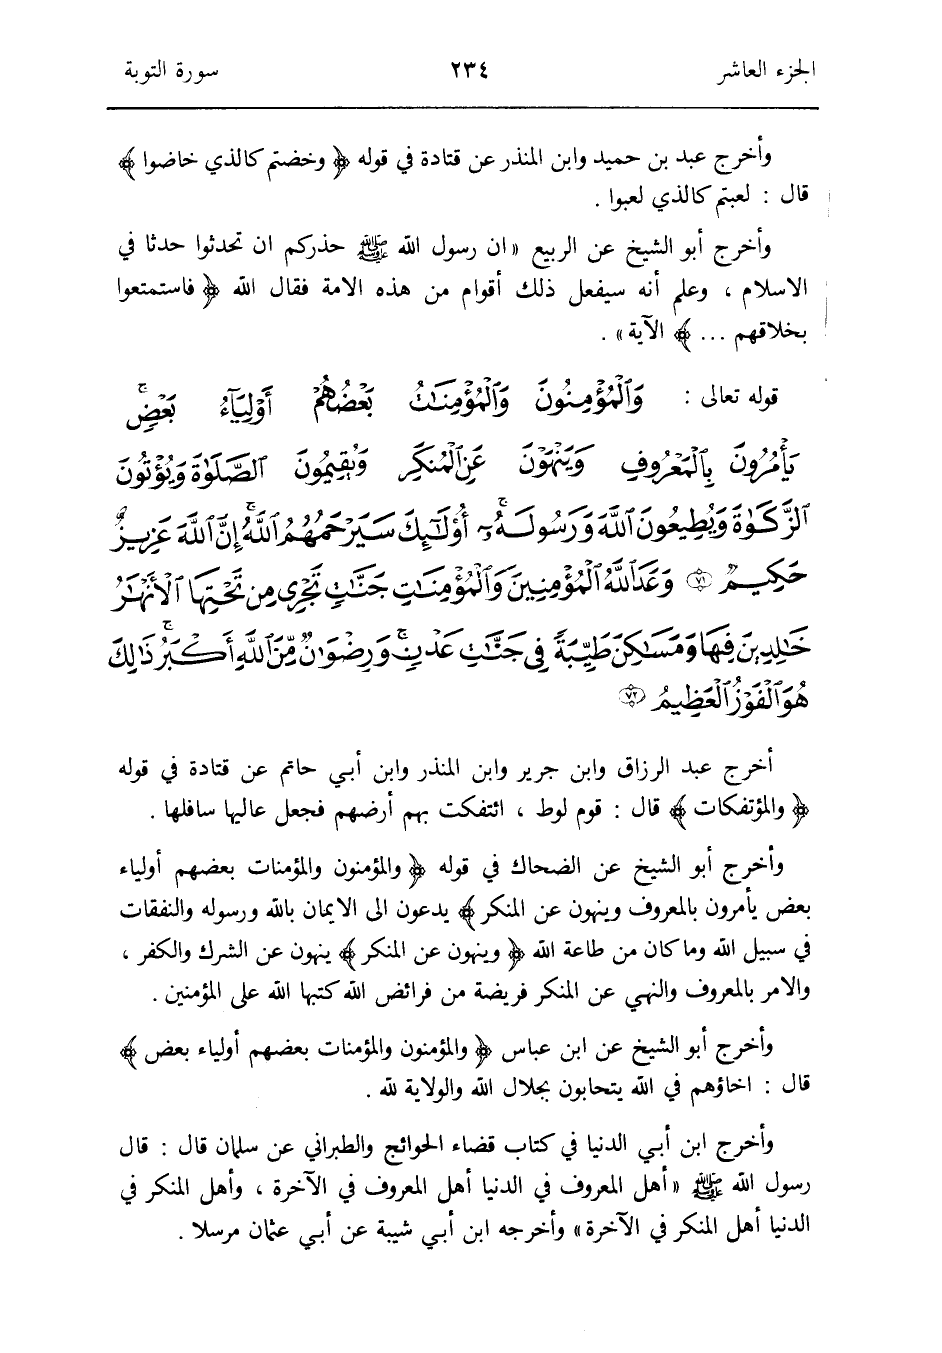 الجزء العاشر ٢٣٤ سورة التوبة
وأخرج عبد بن حميد وابن المنذر عن قتادة في قوله ﴿ وخضتم كالذي خاضوا ﴾
قال : لعبتم كالذي لعبوا .
وأخرج أبو الشيخ عن الربيع « ان رسول الله ﷺ حذركم ان تحدثوا حدثا في
الاسلام ، وعلم أنه سيفعل ذلك أقوام من هذه الامة فقال الله ﴿ فاستمتعوا
بخلاقهم ... ﴾ الآية » .
قوله تعالى : وَٱلْمُؤْمِنُونَ وَٱلْمُؤْمِنَٰتُ بَعْضُهُمْ أَوْلِيَآءُ بَعْضٍۚ
يَأْمُرُونَ بِٱلْمَعْرُوفِ وَيَنْهَوْنَ عَنِ ٱلْمُنكَرِ وَيُقِيمُونَ ٱلصَّلَوٰةَ وَيُؤْتُونَ
ٱلزَّكَوٰةَ وَيُطِيعُونَ ٱللَّهَ وَرَسُولَهُۥٓۚ أُوْلَٰٓئِكَ سَيَرْحَمُهُمُ ٱللَّهُۗ إِنَّ ٱللَّهَ عَزِيزٌ
حَكِيمٌ ﴿٧١﴾ وَعَدَ ٱللَّهُ ٱلْمُؤْمِنِينَ وَٱلْمُؤْمِنَٰتِ جَنَّٰتٍ تَجْرِى مِن تَحْتِهَا ٱلْأَنْهَٰرُ
خَٰلِدِينَ فِيهَا وَمَسَٰكِنَ طَيِّبَةً فِى جَنَّٰتِ عَدْنٍۚ وَرِضْوَٰنٌ مِّنَ ٱللَّهِ أَكْبَرُۚ ذَٰلِكَ
هُوَ ٱلْفَوْزُ ٱلْعَظِيمُ ﴿٧٢﴾
أخرج عبد الرزاق وابن جرير وابن المنذر وابن أبي حاتم عن قتادة في قوله
﴿ والمؤتفكات ﴾ قال : قوم لوط ، ائتفكت بهم أرضهم فجعل عاليها سافلها .
وأخرج أبو الشيخ عن الضحاك في قوله ﴿ والمؤمنون والمؤمنات بعضهم أولياء
بعض يأمرون بالمعروف وينهون عن المنكر ﴾ يدعون الى الايمان بالله ورسوله والنفقات
في سبيل الله وما كان من طاعة الله ﴿ وينهون عن المنكر ﴾ ينهون عن الشرك والكفر ،
والامر بالمعروف والنهي عن المنكر فريضة من فرائض الله كتبها الله على المؤمنين .
وأخرج أبو الشيخ عن ابن عباس ﴿ والمؤمنون والمؤمنات بعضهم أولياء بعض ﴾
قال : اخاؤهم في الله يتحابون بجلال الله والولاية لله .
وأخرج ابن أبي الدنيا في كتاب قضاء الحوائج والطبراني عن سلمان قال : قال
رسول الله ﷺ « أهل المعروف في الدنيا أهل المعروف في الآخرة ، وأهل المنكر في
الدنيا أهل المنكر في الآخرة » وأخرجه ابن أبي شيبة عن أبي عثمان مرسلا .